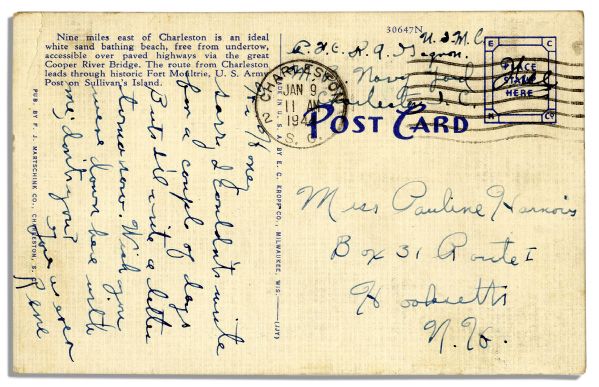 Nine miles east of Charleston is an ideal
white sand bathing beach, free from undertow,
accessible over paved highways via the great
Cooper River Bridge. The route from Charleston
leads through historic Fort Moultrie, U. S. Army
Post on Sullivan's Island.
30647N
U.S.M.C.
P.F.C. R.A. Gagnon
Navy Yard
Charleston S.C.
CHARLESTON
JAN 9
11 AM
194
2
S. C.
E C
PLACE
STAMP
HERE
K Co
Free
POST CARD
Hi Honey
Sorry I couldn't write
for a couple of days
But I'll write a letter
tomorrow. Wish you
were down here with
me, don't you?
Yours ever
Rene
PUB. BY F. J. MARTSCHINK CO., CHARLESTON, S.
MADE IN U. S. A. BY E. C. KROPP CO., MILWAUKEE, WIS.
Miss Pauline Harnois
Box 31 Route I
Hooksett
N.H.